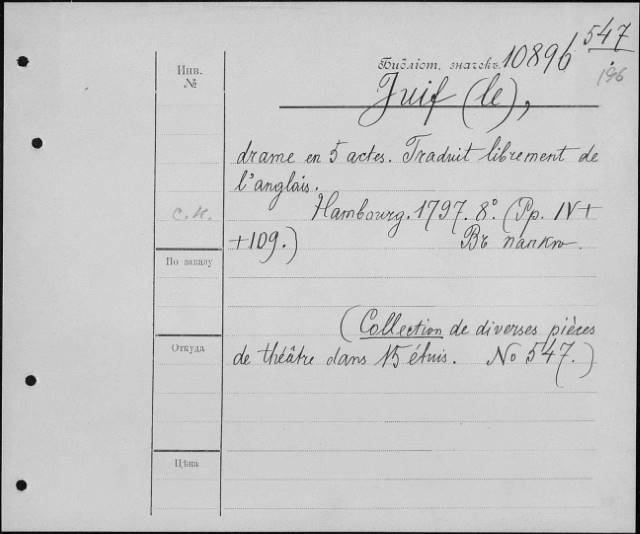 547
Библіот. значекъ. 10896
196
Инв.
№
Juif (le),
drame en 5 actes. Traduit librement de
l'anglais.
Hambourg. 1797. 8°. (Pp. IV +
с.к.
+ 109.) Въ папкѣ.
По заказу
(Collection de diverses pièces
Откуда
de théâtre dans 15 étuis. No 547.)
Цѣна